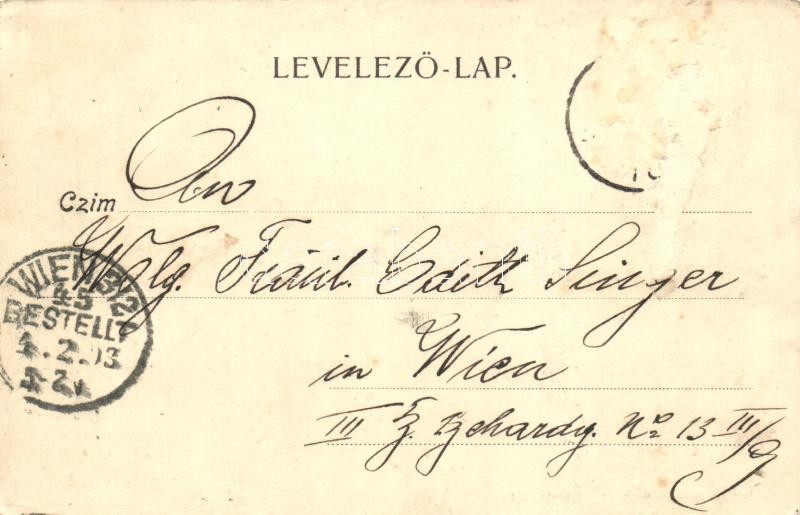 LEVELEZŐ-LAP.
Czim An
Wolg. Fräul. Edith Singer
in Wien
III No 13 III/9
WIEN 3/2
45
BESTELLT
2.03